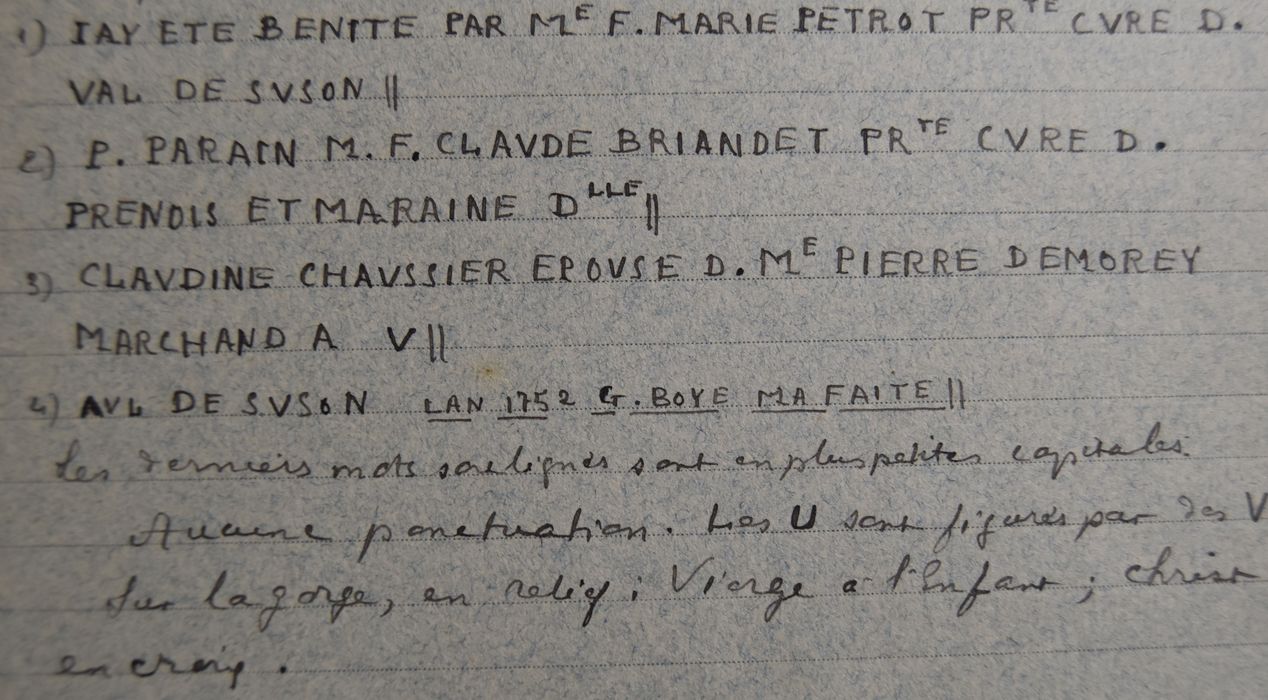 1) IAY ETE BENITE PAR Mᴱ F. MARIE PETROT PRᵀᴱ CVRE D.
VAL DE SVSON ||
2) P. PARAIN M. F. CLAVDE BRIANDET PRᵀᴱ CVRE D.
PRENOIS ET MARAINE Dᴸᴸᴱ ||
3) CLAVDINE CHAVSSIER EPOVSE D. Mᴱ PIERRE DEMOREY
MARCHAND A V ||
4) AVL DE SVSON LAN 1752 G. BOYE MA FAITE ||
Les derniers mots soulignés sont en plus petites capitales.
Aucune ponctuation. Les U sont figurés par des V
Sur la gorge, en relief : Vierge à l'Enfant ; christ
en croix.